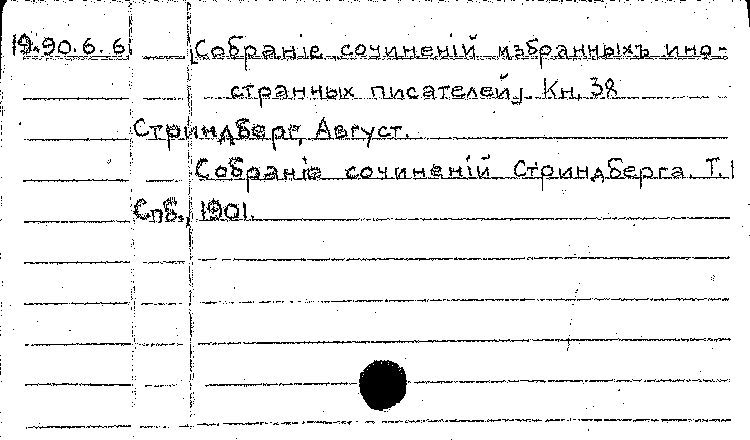 19.90.6.6. [Собраніе сочиненій избранныхъ ино-
странных писателей] Кн. 38
Стриндберг, Август.
Собраніе сочиненій Стриндберга. Т. 1
Спб., 1901.